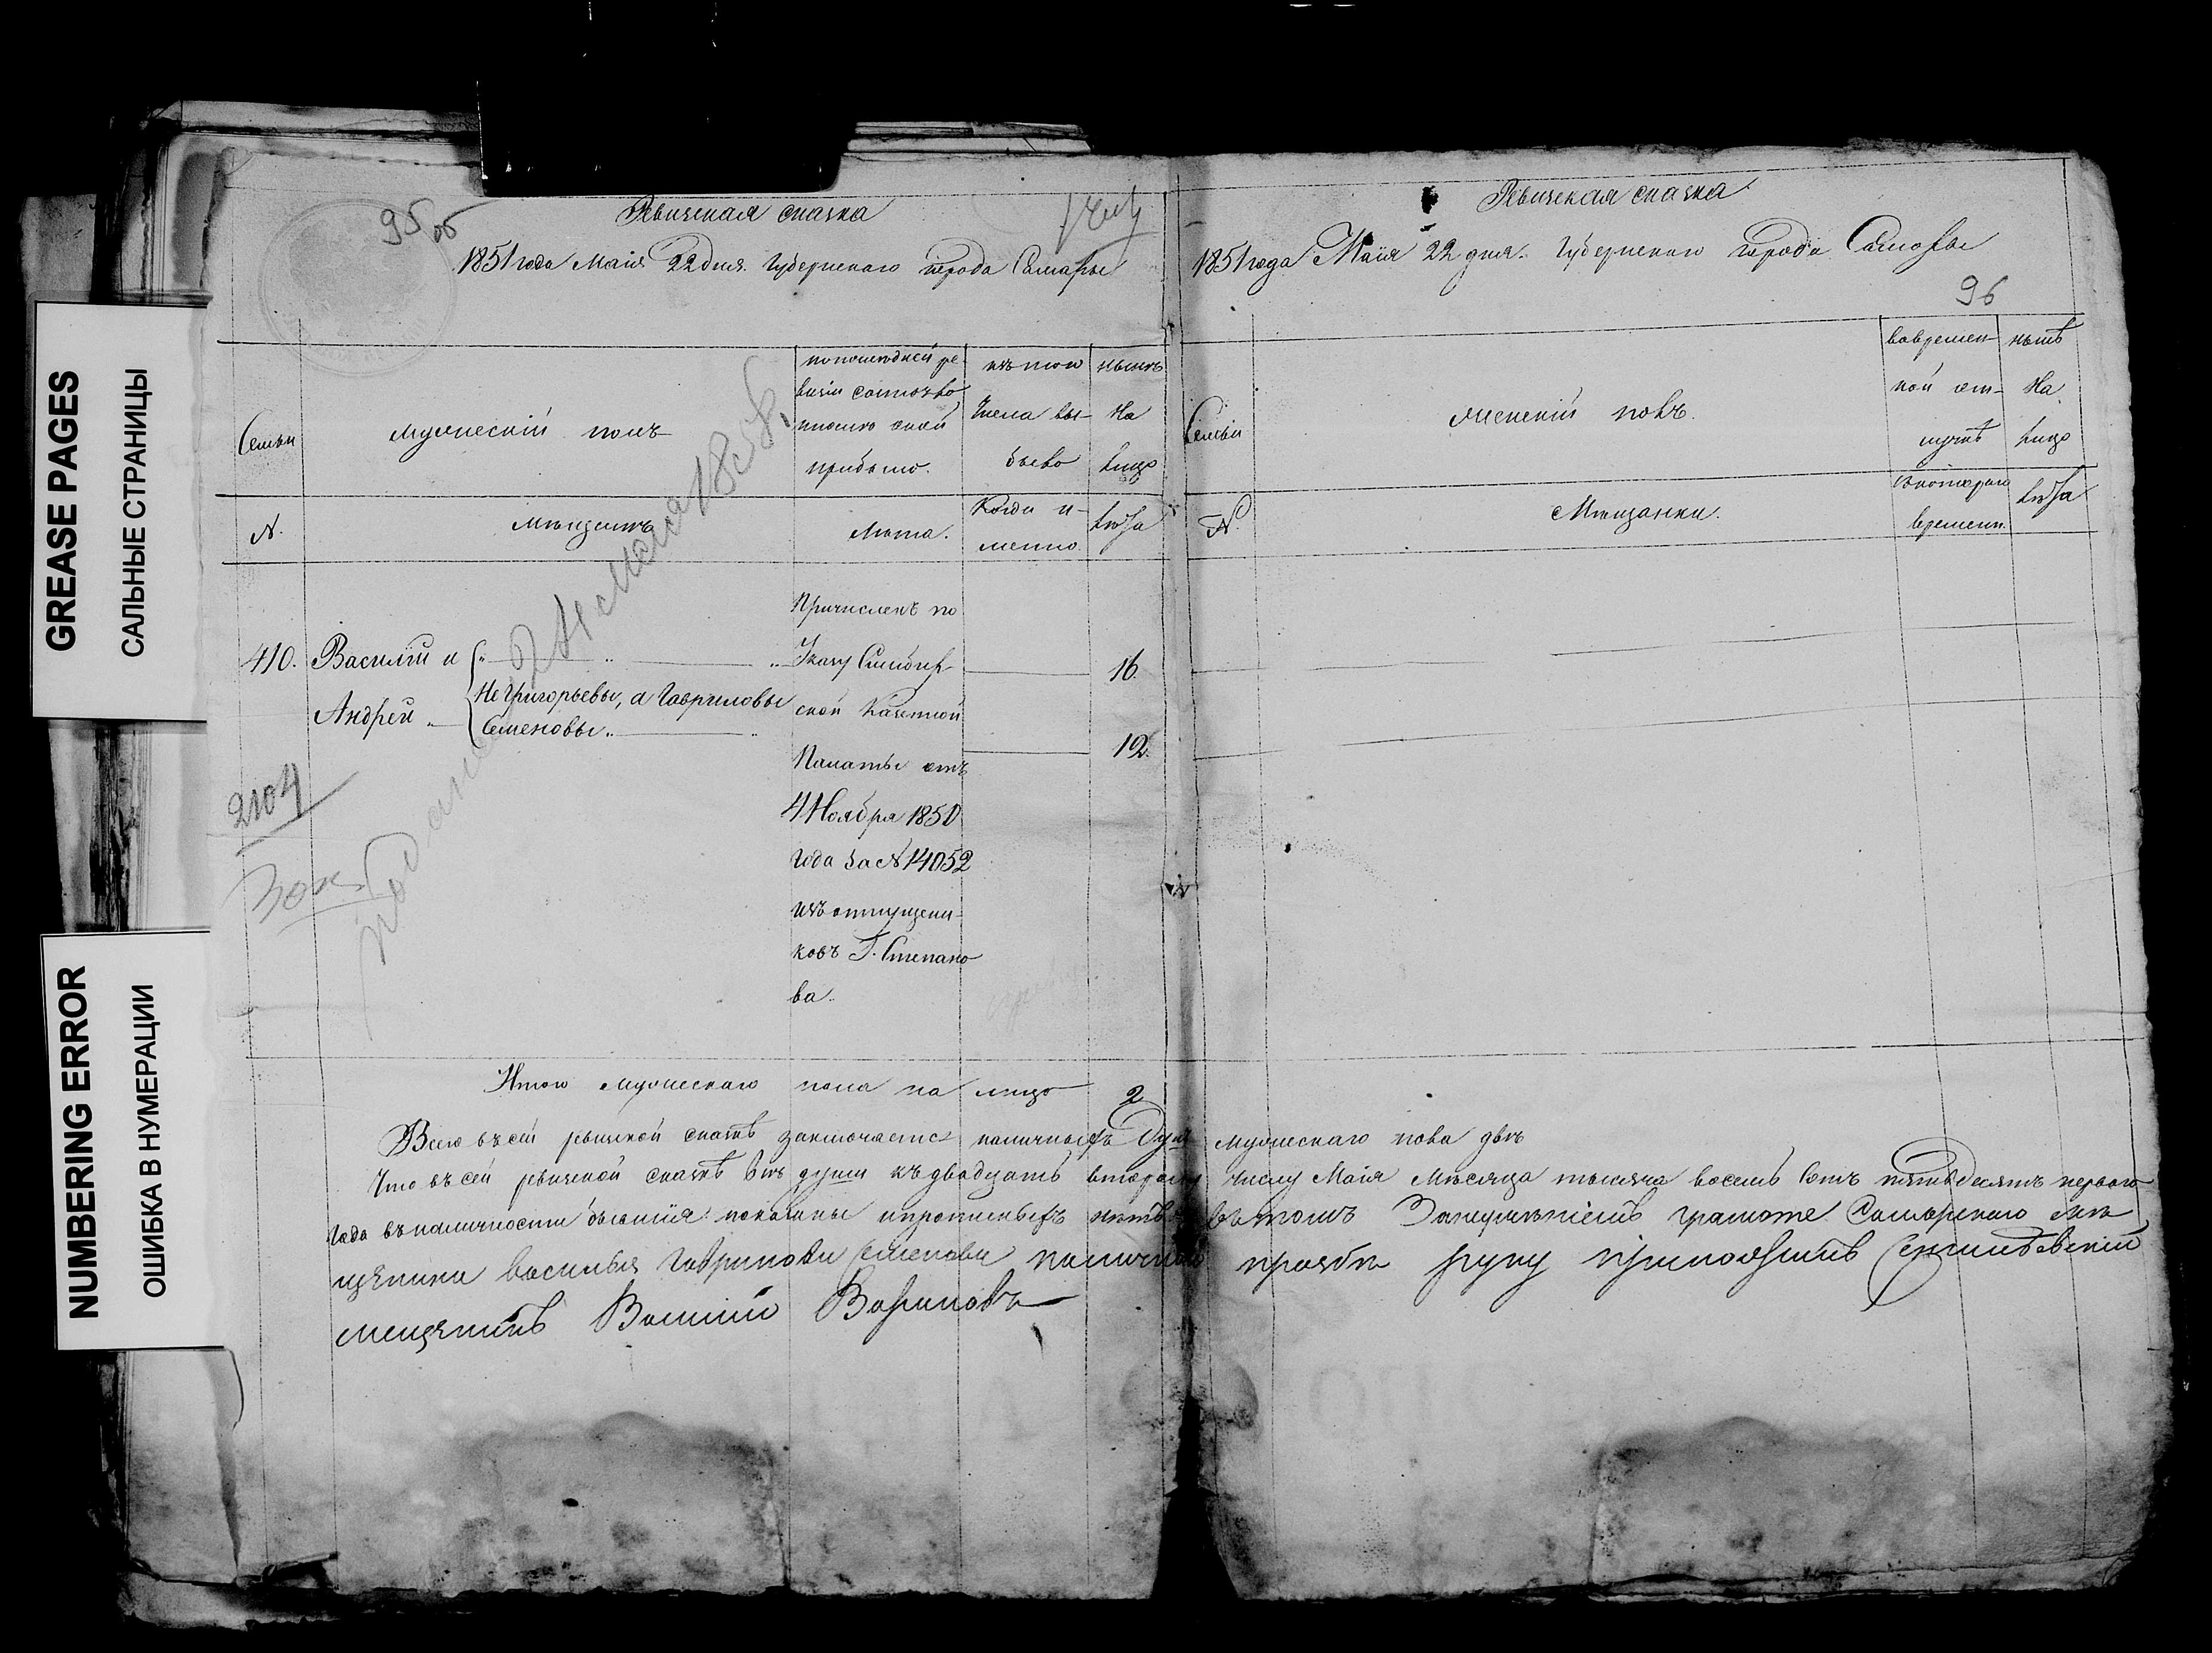 GREASE PAGES
САЛЬНЫЕ СТРАНИЦЫ
NUMBERING ERROR
ОШИБКА В НУМЕРАЦИИ
95 об
Ревизская сказка
1851 года Маія 22 дня. Губернскаго города Самары
Семьи
мужескій полъ
по последней ре-
визіи состояло
и после оной
прибыло.
изъ того
числа вы-
было
ныне
на
лицо
N.
Мещане
Лета.
Когда и-
менно
Лета
410.
Василий и
Андрей
Не Григорьевы, а Гавриловы
Семеновы
Причисленъ по
Указу Симбир-
ской Казенной
Палаты отъ
4 Ноября 1850
года за N 14052
изъ отпущени-
ковъ Г. Степано
ва.
16.
12.
2104
1858
Итого мужескаго пола на лицо 2
Ревизская сказка
1851 года Маія 22 дня. Губернскаго города Самары
96
Семьи
женскій полъ.
вовремен-
ной от-
лучке
ныне
на
лицо
N.
Мещанки.
Съ котораго
времени.
Лета
Всего въ сей ревизской сказке заключается наличныхъ душъ мужескаго пола две
Что въ сей ревизской сказке все души къ двадцать второму числу Маія месяца тысяча восемь сотъ пятьдесятъ перваго
года въ наличности бывшія показаны и прописныхъ нетъ въ томъ грамоте Самарскаго ме
щанина Василья Гаврилова Семенова личной прозбе руку приложилъ
мещанинъ Василий